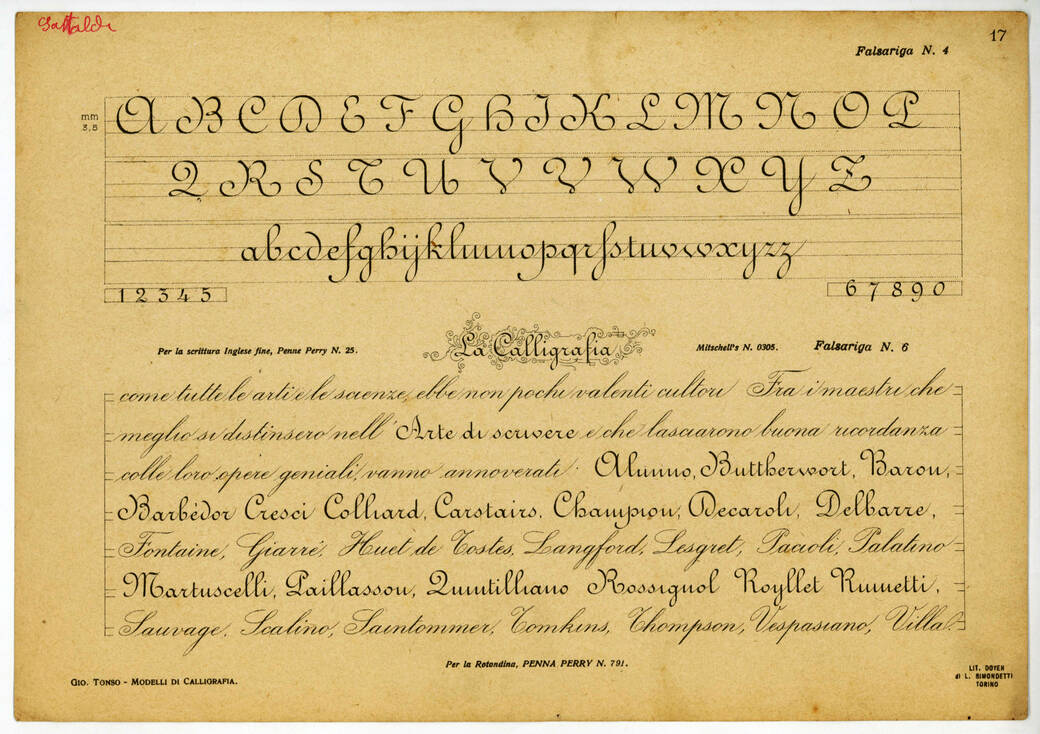 Gastaldi
17
Falsariga N. 4
mm
3,5
A B C D E F G H I K L M N O P
Q R S T U V V W X Y Z
abcdefghijklmnopqrsstuvwxyzz
1 2 3 4 5
6 7 8 9 0
Per la scrittura Inglese fine, Penne Perry N. 25.
La Calligrafia
Mitschell's N. 0305.
Falsariga N. 6
come tutte le arti e le scienze, ebbe non pochi valenti cultori Fra i maestri, che
meglio si distinsero nell' Arte di scrivere e che lasciarono buona ricordanza
colle loro opere geniali, vanno annoverati: Alunno, Buttherwort, Baron,
Barbédor Cresci Colliard, Carstairs, Champion, Decaroli, Delbarre,
Fontaine, Giarré, Huet de Tostes, Langford, Lesgret, Pacioli, Palatino
Martuscelli, Paillasson, Quintilliano Rossignol Royllet Ruinetti,
Sauvage, Scalino, Saintommer, Tomkins, Thompson, Vespasiano, Villa.
Per la Rotondina, PENNA PERRY N. 791.
GIO. TONSO - MODELLI DI CALLIGRAFIA.
LIT. DOYEN
di L. SIMONDETTI
TORINO